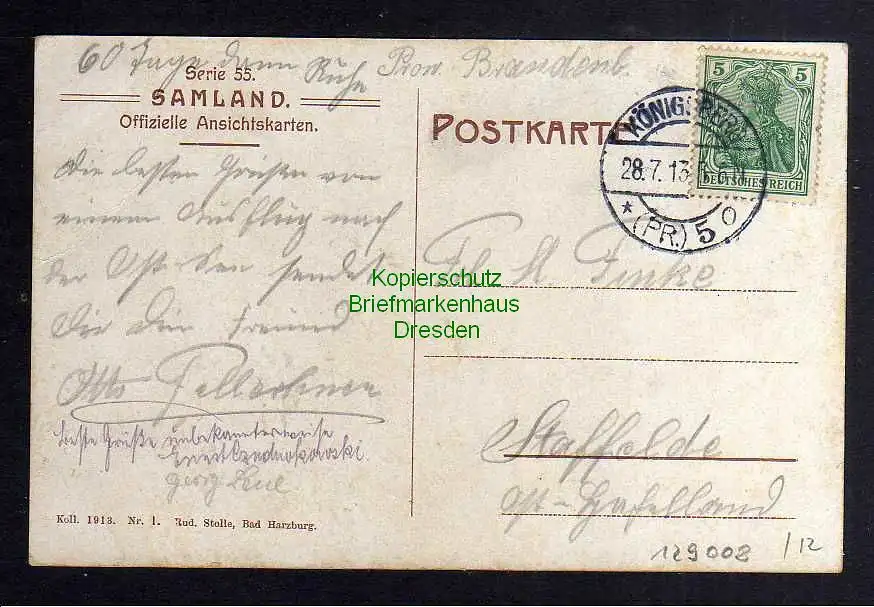 60 Tage dann Ruhe
Prov. Brandenb.
Serie 55.
SAMLAND.
Offizielle Ansichtskarten.
POSTKARTE
5 5
DEUTSCHES REICH
KÖNIGSBERG
28.7.13
* (PR.) 5 o
Die besten Grüßen von
einem Ausflug nach
der Ostsee sendet
Dir Dein Freund
Otto
beste Grüße unbekannterweise
Georg
Frl. M. Finke
Staffelde
Ost-Havelland
Kopierschutz
Briefmarkenhaus
Dresden
Koll. 1913. Nr. 1. Rud. Stolle, Bad Harzburg.
129008 /12